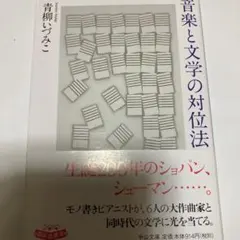 音楽と文学の対位法
青柳いづみこ
生誕200年のショパン、
シューマン……。
モノ書きピアニストが、6人の大作曲家と
同時代の文学に光を当てる。
中公文庫 定価 本体914円(税別)